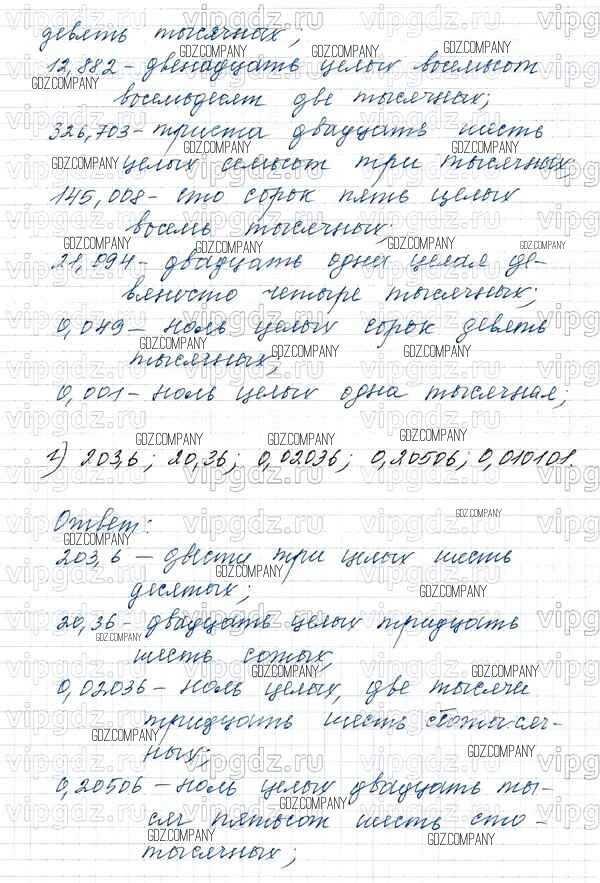 девять тысячных;
12,882 - двенадцать целых восемьсот
восемьдесят две тысячных;
326,703 - триста двадцать шесть
целых семьсот три тысячных;
145,008 - сто сорок пять целых
восемь тысячных;
21,094 - двадцать одна целая де-
вяносто четыре тысячных;
0,049 - ноль целых сорок девять
тысячных;
0,001 - ноль целых одна тысячная;
г) 203,6; 20,36; 0,02036; 0,20506; 0,010101.
Ответ:
203,6 - двести три целых шесть
десятых;
20,36 - двадцать целых тридцать
шесть сотых;
0,02036 - ноль целых, две тысячи
тридцать шесть стотысяч-
ных;
0,20506 - ноль целых двадцать ты-
сяч пятьсот шесть сто-
тысячных;
vipgdz.ru
GDZ.COMPANY